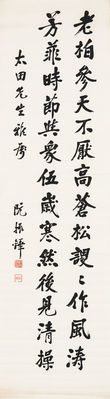 老柏參天不厭高蒼松謖〻作風濤
芳菲時節與衆伍歲寒然後見清操
太田先生雅屬
阮振鐸